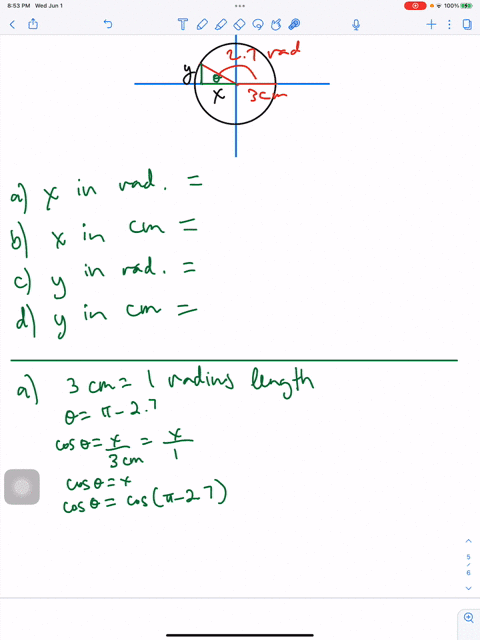 8:53 PM Wed Jun 1
100%
2.7 rad
y
θ
x
3cm
a) x in rad. =
b) x in cm =
c) y in rad. =
d) y in cm =
a) 3 cm = 1 radius length
θ = π - 2.7
cos θ = x/3cm = x/1
cos θ = x
cos θ = cos(π - 2.7)
5
/
6